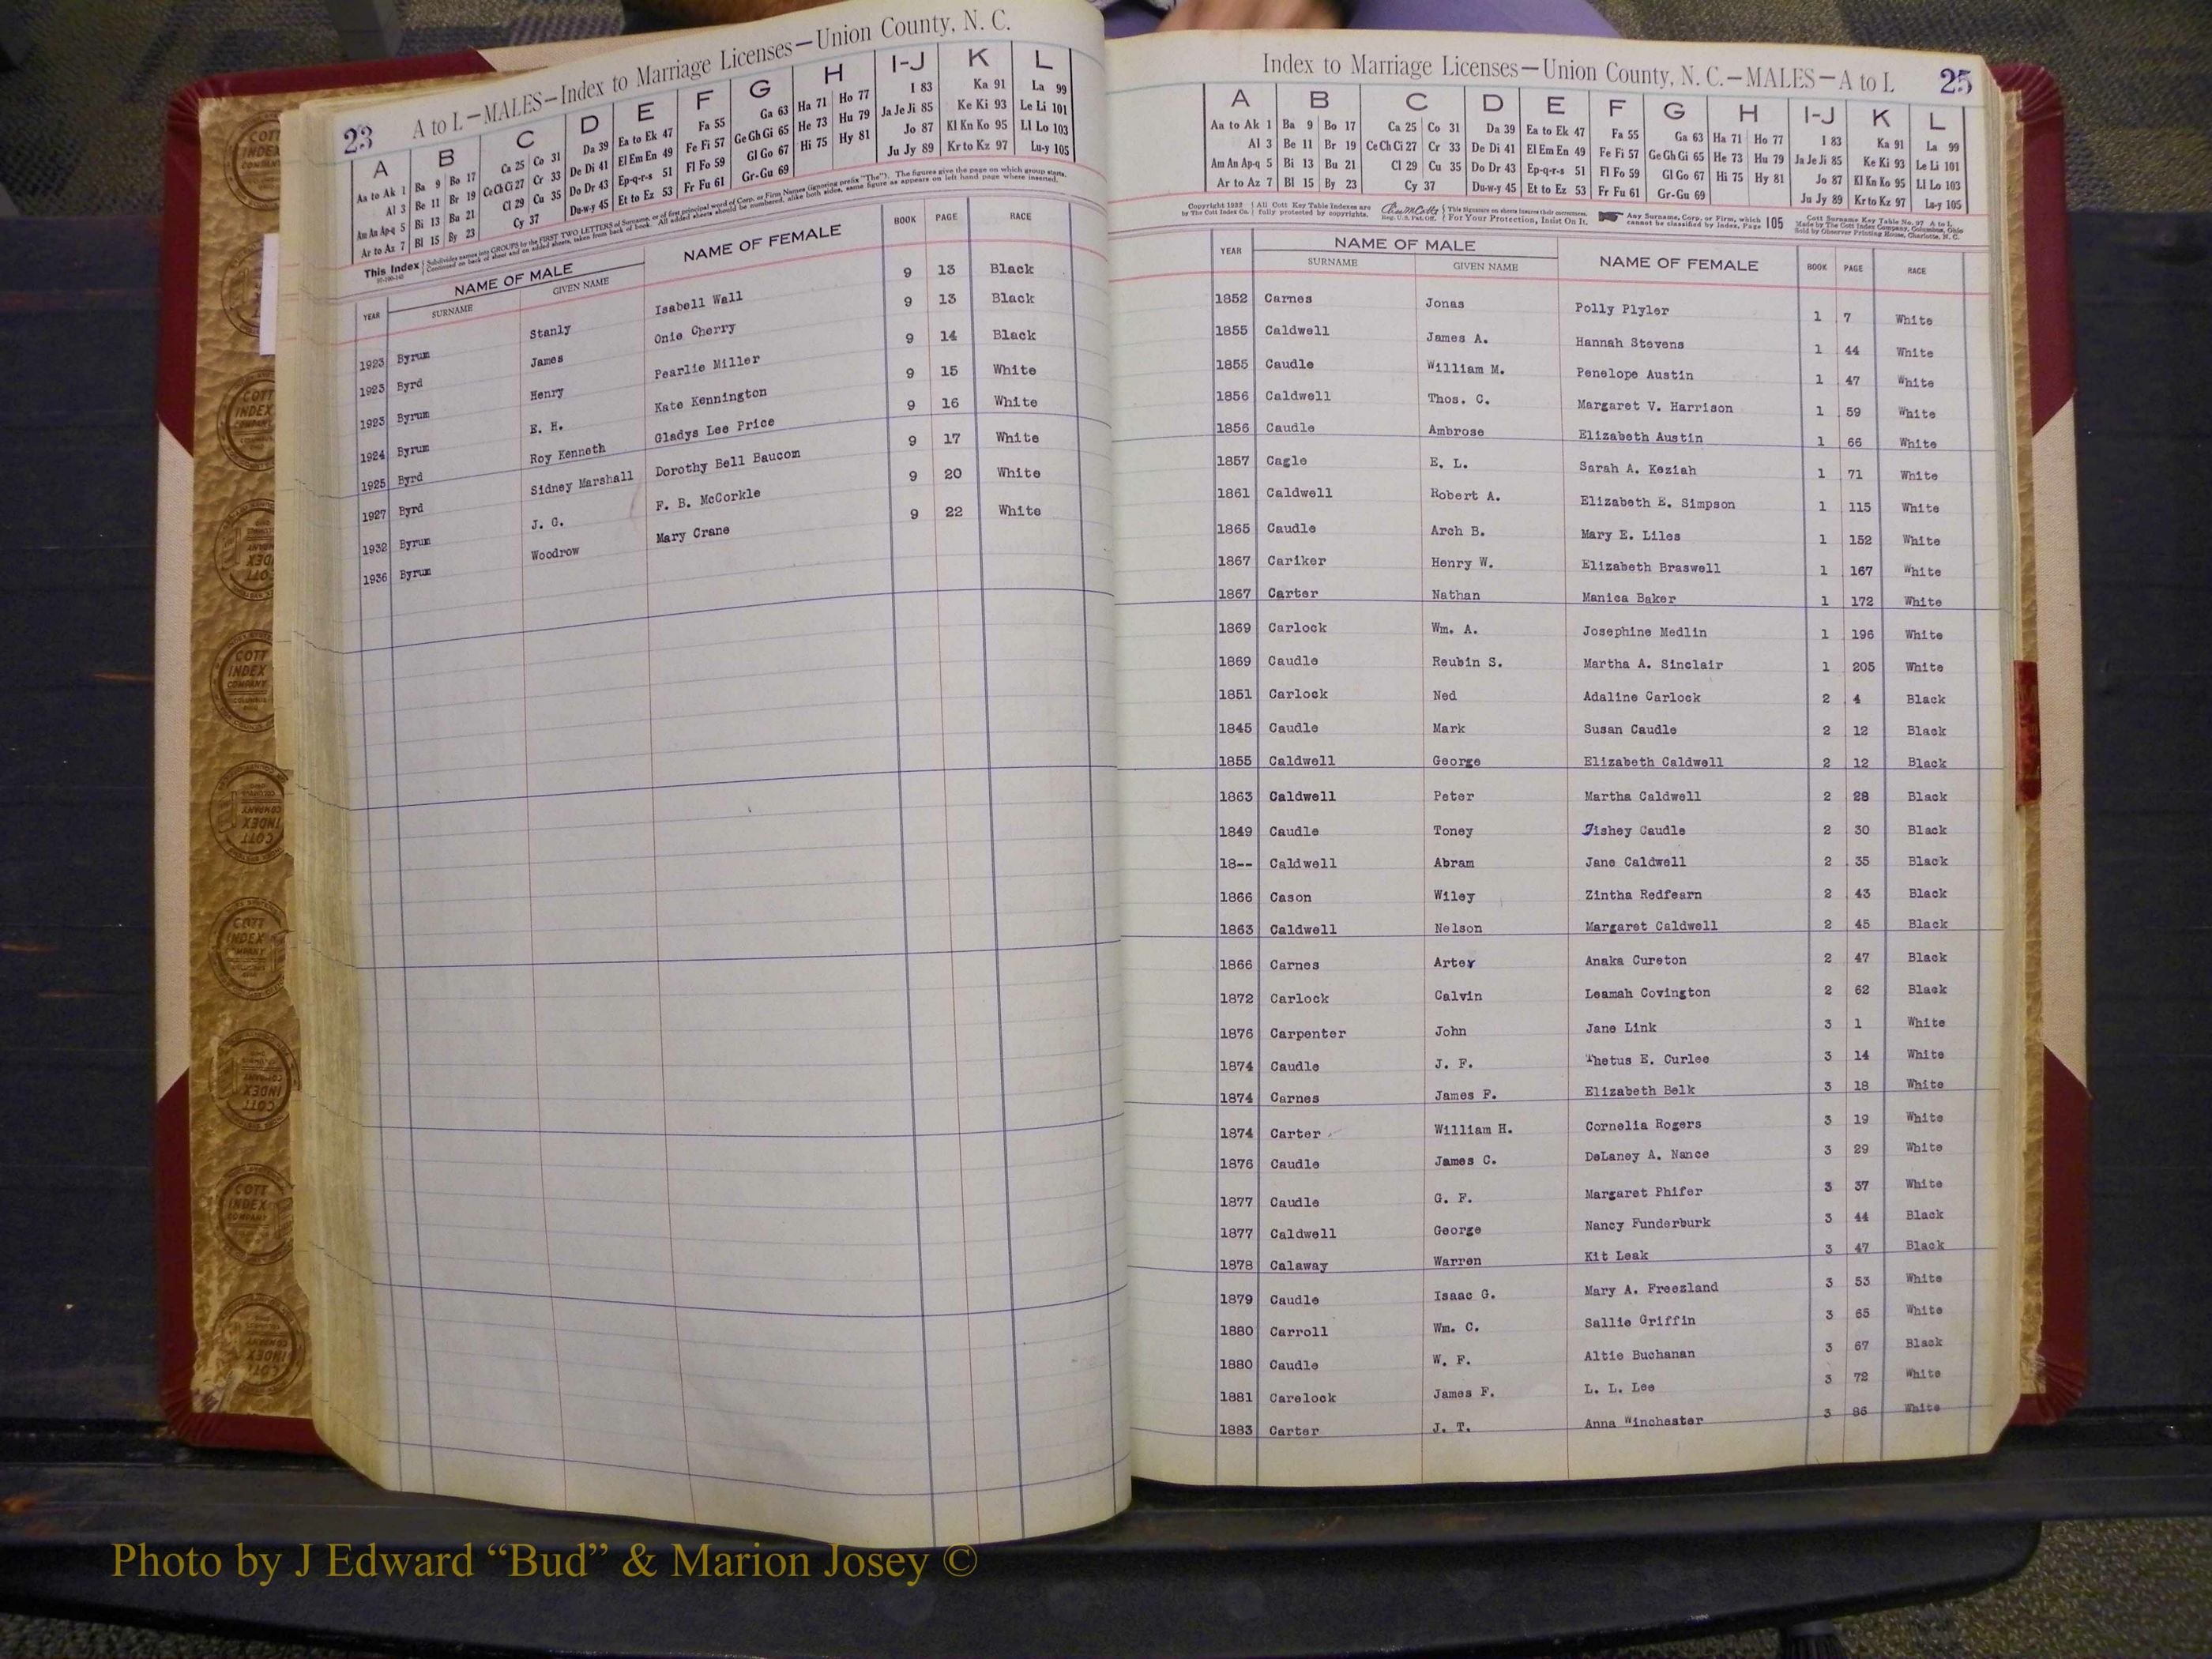 23 A to L—MALES—Index to Marriage Licenses—Union County, N. C.
A B C D E F G H I-J K L
Aa to Ak 1 Ba 9 Bo 17 Ca 25 Co 31 Da 39 Ea to Ek 47 Fa 55 Ga 63 Ha 71 Ho 77 I 83 Ka 91 La 99
Al 3 Be 11 Br 19 Ce Ch Ci 27 Cr 33 De Di 41 El Em En 49 Fe Fi 57 Ge Gh Gi 65 He 73 Hu 79 Ja Je Ji 85 Ke Ki 93 Le Li 101
Am An Ap-q 5 Bi 13 Bu 21 Cl 29 Cu 35 Do Dr 43 Ep-q-r-s 51 Fl Fo 59 Gl Go 67 Hi 75 Hy 81 Jo 87 Kl Kn Ko 95 Ll Lo 103
Ar to Az 7 Bl 15 By 23 Cy 37 Du-w-y 45 Et to Ez 53 Fr Fu 61 Gr-Gu 69 Ju Jy 89 Kr to Kz 97 Lu-y 105
This Index { Subdivides names into GROUPS by the FIRST TWO LETTERS of Surname, or of first principal word of Corp. or Firm Names (ignoring prefix "The"). The figures give the page on which group starts.
Continued on back of sheet and on added sheets, taken from back of book. All added sheets should be numbered, alike both sides, same figure as appears on left hand page where inserted.
NAME OF MALE NAME OF FEMALE BOOK PAGE RACE
YEAR SURNAME GIVEN NAME
1923 Byrum Stanly Isabell Wall 9 13 Black
1923 Byrd James Onie Cherry 9 13 Black
1923 Byrum Henry Pearlie Miller 9 14 Black
1924 Byrum E. H. Kate Kennington 9 15 White
1925 Byrd Roy Kenneth Gladys Lee Price 9 16 White
1927 Byrd Sidney Marshall Dorothy Bell Baucom 9 17 White
1932 Byrum J. G. F. B. McCorkle 9 20 White
1936 Byrum Woodrow Mary Crane 9 22 White
Index to Marriage Licenses—Union County, N. C.—MALES—A to L 25
A B C D E F G H I-J K L
Aa to Ak 1 Ba 9 Bo 17 Ca 25 Co 31 Da 39 Ea to Ek 47 Fa 55 Ga 63 Ha 71 Ho 77 I 83 Ka 91 La 99
Al 3 Be 11 Br 19 Ce Ch Ci 27 Cr 33 De Di 41 El Em En 49 Fe Fi 57 Ge Gh Gi 65 He 73 Hu 79 Ja Je Ji 85 Ke Ki 93 Le Li 101
Am An Ap-q 5 Bi 13 Bu 21 Cl 29 Cu 35 Do Dr 43 Ep-q-r-s 51 Fl Fo 59 Gl Go 67 Hi 75 Hy 81 Jo 87 Kl Kn Ko 95 Ll Lo 103
Ar to Az 7 Bl 15 By 23 Cy 37 Du-w-y 45 Et to Ez 53 Fr Fu 61 Gr-Gu 69 Ju Jy 89 Kr to Kz 97 Lu-y 105
Copyright 1932 by The Cott Index Co. { All Cott Key Table Indexes are fully protected by copyrights. Reg. U.S. Pat. Off. { This Signature on sheets insures their correctness. For Your Protection, Insist On It. Any Surname, Corp. or Firm, which cannot be classified by Index, Page 105 Cott Surname Key Table No. 97 A to L Made by The Cott Index Company, Columbus, Ohio Sold by Observer Printing House, Charlotte, N. C.
YEAR NAME OF MALE NAME OF FEMALE BOOK PAGE RACE
SURNAME GIVEN NAME
1852 Carnes Jonas Polly Plyler 1 7 White
1855 Caldwell James A. Hannah Stevens 1 44 White
1855 Caudle William M. Penelope Austin 1 47 White
1856 Caldwell Thos. C. Margaret V. Harrison 1 59 White
1856 Caudle Ambrose Elizabeth Austin 1 66 White
1857 Cagle E. L. Sarah A. Keziah 1 71 White
1861 Caldwell Robert A. Elizabeth E. Simpson 1 115 White
1865 Caudle Arch B. Mary E. Liles 1 152 White
1867 Cariker Henry W. Elizabeth Braswell 1 167 White
1867 Carter Nathan Manica Baker 1 172 White
1869 Carlock Wm. A. Josephine Medlin 1 196 White
1869 Caudle Reubin S. Martha A. Sinclair 1 205 White
1851 Carlock Ned Adaline Carlock 2 4 Black
1845 Caudle Mark Susan Caudle 2 12 Black
1855 Caldwell George Elizabeth Caldwell 2 12 Black
1863 Caldwell Peter Martha Caldwell 2 28 Black
1849 Caudle Toney Jishey Caudle 2 30 Black
18-- Caldwell Abram Jane Caldwell 2 35 Black
1866 Cason Wiley Zintha Redfearn 2 43 Black
1863 Caldwell Nelson Margaret Caldwell 2 45 Black
1866 Carnes Arter Anaka Cureton 2 47 Black
1872 Carlock Calvin Leamah Covington 2 62 Black
1876 Carpenter John Jane Link 3 1 White
1874 Caudle J. F. Thetus E. Curlee 3 14 White
1874 Carnes James F. Elizabeth Belk 3 18 White
1874 Carter William H. Cornelia Rogers 3 19 White
1876 Caudle James C. DeLaney A. Nance 3 29 White
1877 Caudle G. F. Margaret Phifer 3 37 White
1877 Caldwell George Nancy Funderburk 3 44 Black
1878 Calaway Warren Kit Leak 3 47 Black
1879 Caudle Isaac G. Mary A. Freezland 3 53 White
1880 Carroll Wm. C. Sallie Griffin 3 65 White
1880 Caudle W. F. Altie Buchanan 3 67 Black
1881 Carelock James F. L. L. Lee 3 72 White
1883 Carter J. T. Anna Winchester 3 86 White
COTT INDEX COMPANY
Photo by J Edward “Bud” & Marion Josey ©